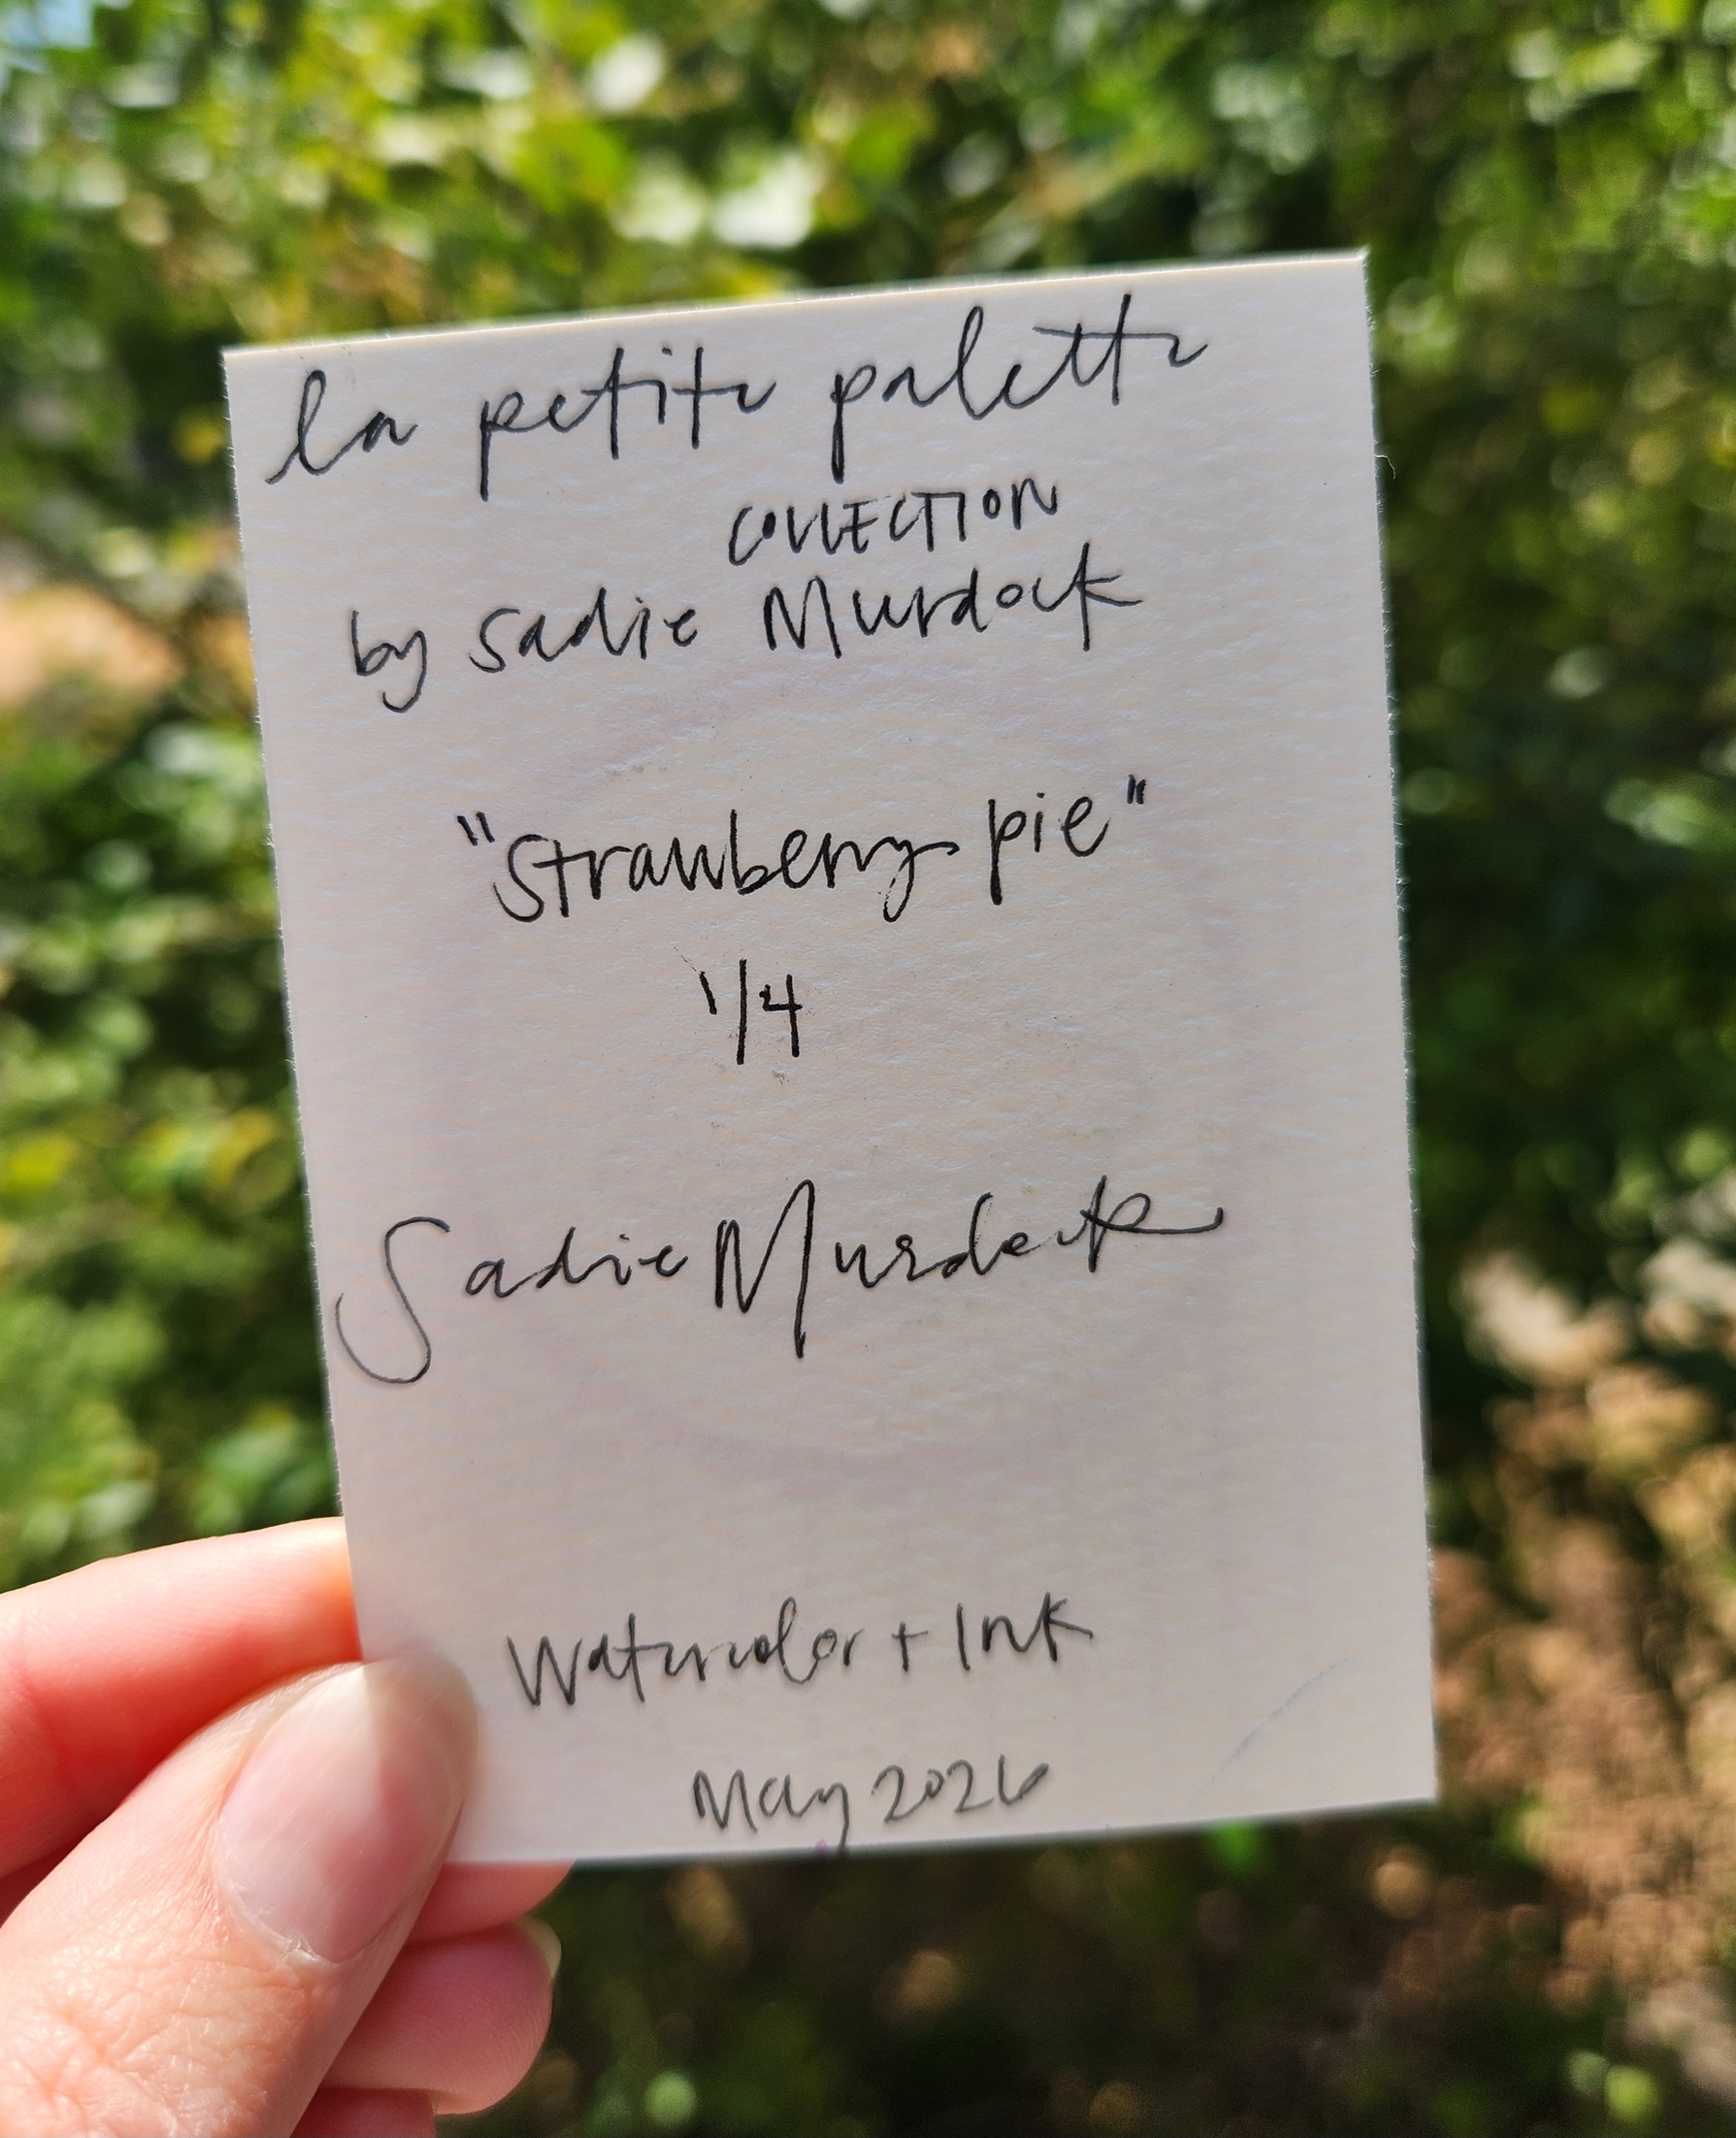 la petite palette
COLLECTION
by Sadie Murdock
"Strawberry pie"
1/4
Sadie Murdock
Watercolor + Ink
May 2026